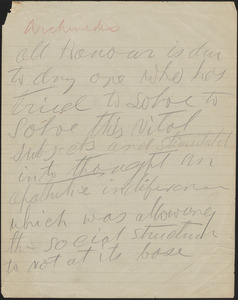 Archimedes
all Honour is due
to any one who has
tried to solve to
solve this vital
subjects and stimulated
into thought an
apathetic indifference
which was allowing
the social structure
to rot at its base